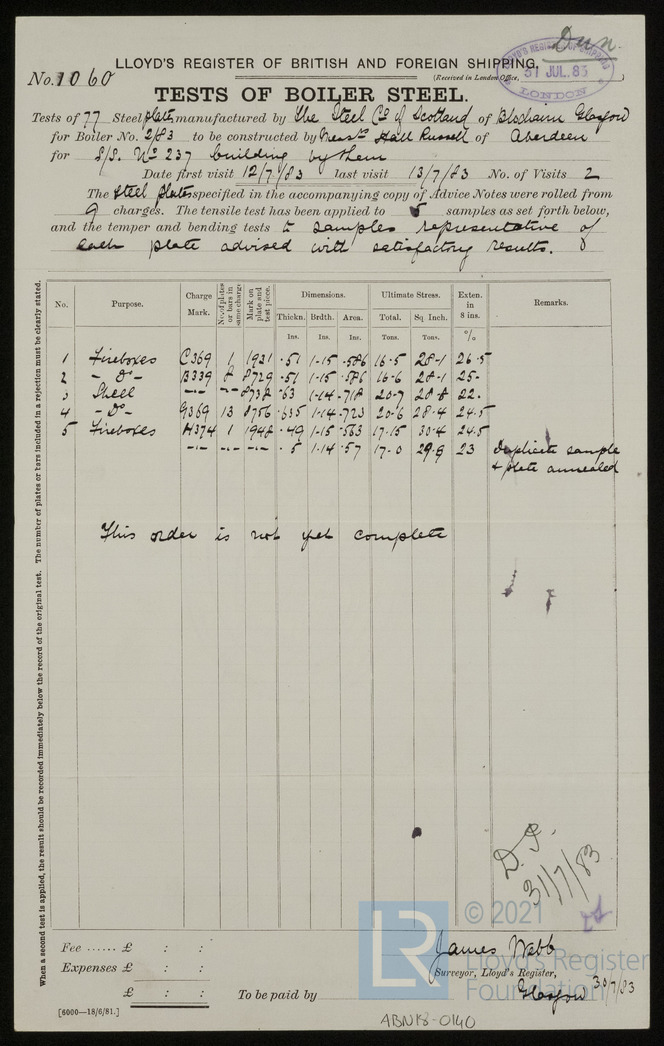 Dun.
LLOYD'S REGISTER OF BRITISH AND FOREIGN SHIPPING.
No. 1060
(Received in London Office, )
LLOYD'S REGISTER OF SHIPPING
31 JUL. 83
LONDON
TESTS OF BOILER STEEL.
Tests of 77 Steel plates manufactured by The Steel Co of Scotland of Blochairn Glasgow
for Boiler No. 2/83 to be constructed by Messrs Hall Russell of Aberdeen
for S/S. No 237 building by them
Date first visit 12/7/83 last visit 13/7/83 No. of Visits 2
The Steel plates specified in the accompanying copy of Advice Notes were rolled from
9 charges. The tensile test has been applied to 5 samples as set forth below,
and the temper and bending tests to samples representative of
each plate advised with satisfactory results.
No. Purpose. Charge Mark. No. of plates or bars in same charge Mark on plate and test piece. Dimensions. Ultimate Stress. Exten. in 8 ins. Remarks.
Thickn. Brdth. Area. Total. Sq. Inch.
Ins. Ins. Ins. Tons. Tons. %
1 Fireboxes C369 1 1931 .51 1.15 .586 16.5 28.1 26.5
2 - Do - B339 8 8729 .51 1.15 .586 16.6 28.1 25.
3 Shell -"- -"- 8738 .63 1.14 .718 20.7 28.8 22.
4 - Do - G369 13 8756 .635 1.14 .723 20.6 28.4 24.5
5 Fireboxes H374 1 1948 .49 1.15 .563 17.15 30.4 24.5
-"- -"- -"- .5 1.14 .57 17.0 29.8 23 Duplicate sample
& plate annealed
This order is not yet complete
When a second test is applied, the result should be recorded immediately below the record of the original test. The number of plates or bars included in a rejection must be clearly stated.
31/7/83
Fee ...... £ : :
Expenses £ : :
£ : :
To be paid by
James Webb
Surveyor, Lloyd's Register,
Glasgow 30/7/83
[6000—18/6/81.]
ABN18-0140
LR © 2021
Lloyd's Register
Foundation